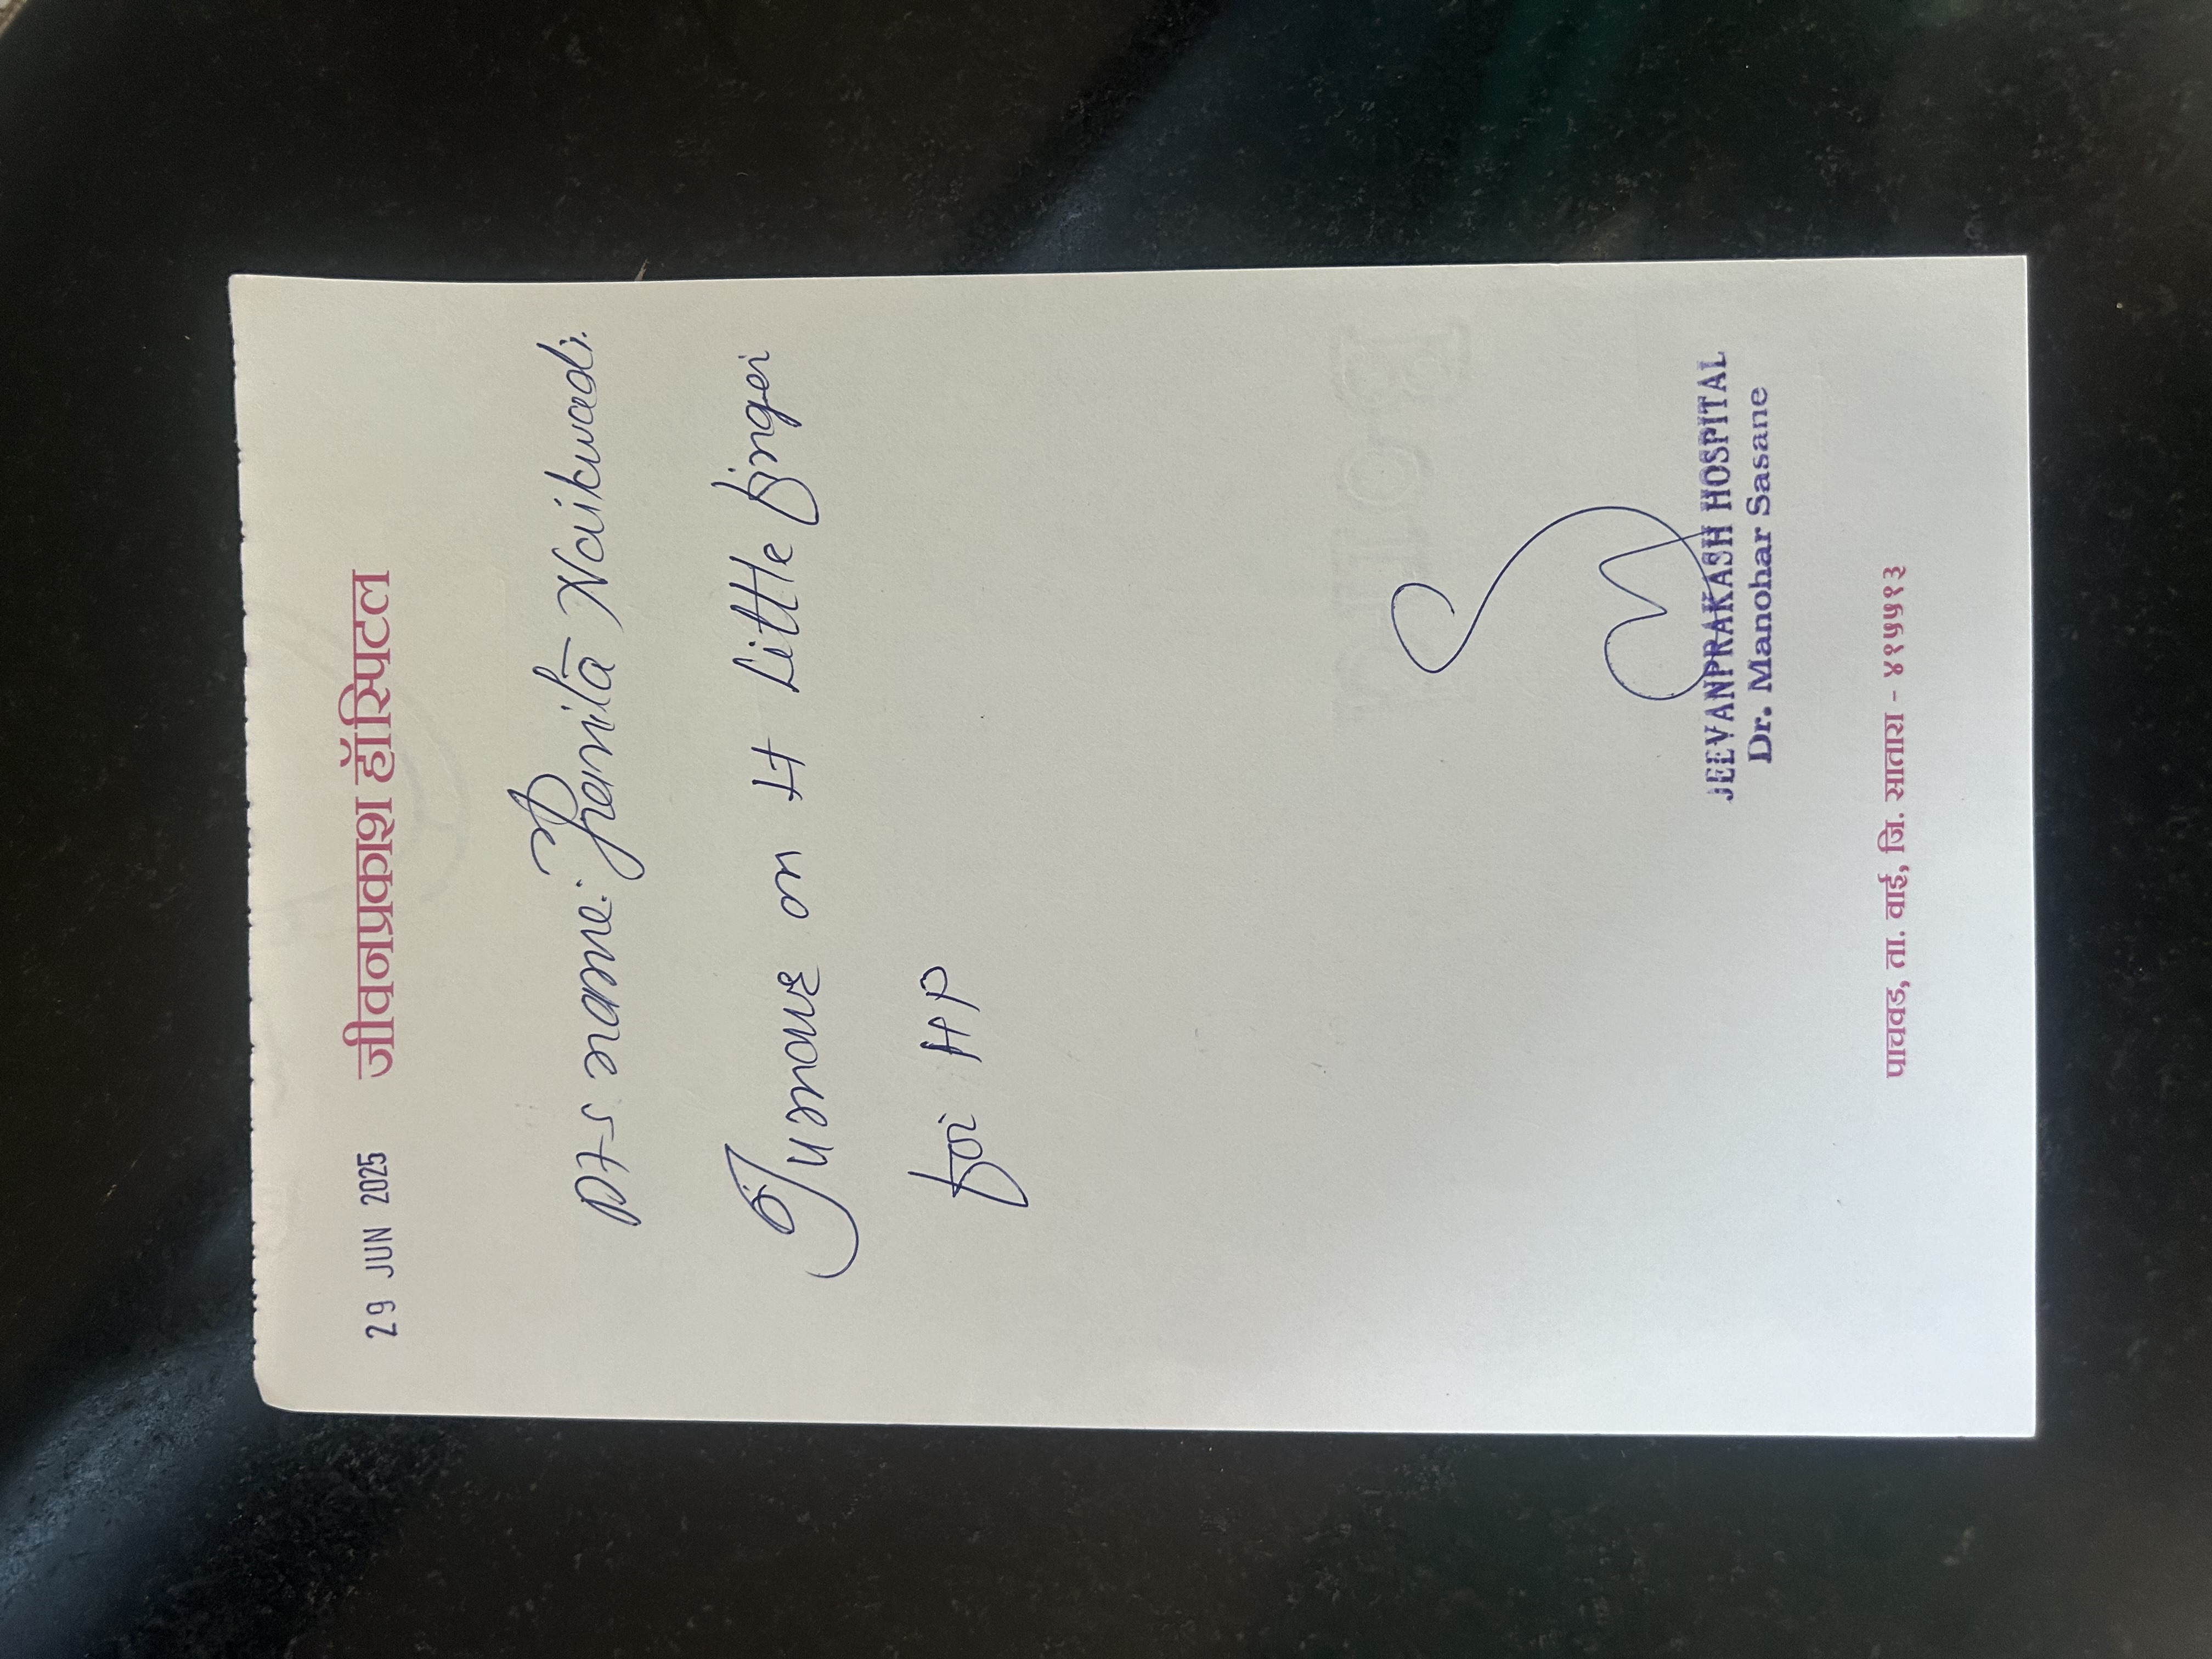 29 JUN 2025 जीवनप्रकाश हॉस्पिटल
Pt-s name: Premila Naikwadi.
Tumour on Lt Little finger
for HP
JEEVANPRAKASH HOSPITAL
Dr. Manohar Sasane
पाचवड, ता. वाई, जि. सातारा - ४१५५१३